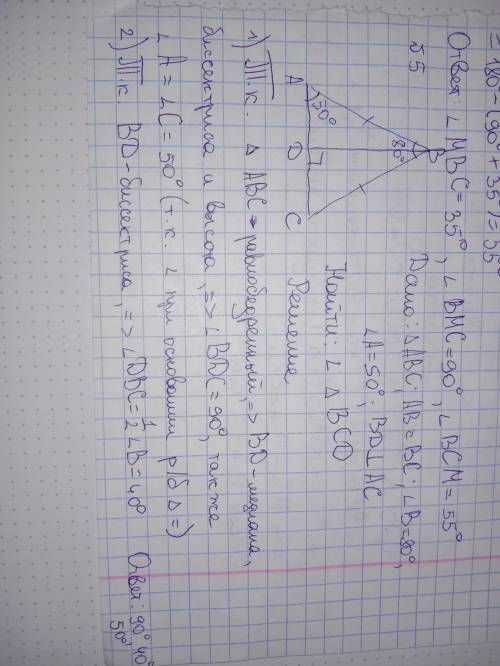 = 180° - (90° + 35°) = 55°
Ответ: ∠MBC = 35°, ∠BMC = 90°, ∠BCM = 55°
№5
A
50°
D
C
80°
B
Дано: △ABC; AB = BC; ∠B = 80°,
∠A = 50°; BD ⊥ AC
Найти: ∠ △ BCD
Решение
1) Т.к. △ ABC - равнобедренный, => BD - медиана,
биссектриса и высота, => ∠BDC = 90°, также
∠A = ∠C = 50° (т.к. ∠ при основании р/б △ =)
2) Т.к. BD - биссектриса, => ∠DBC = 1/2 ∠B = 40°
Ответ: 90° 40°
50°